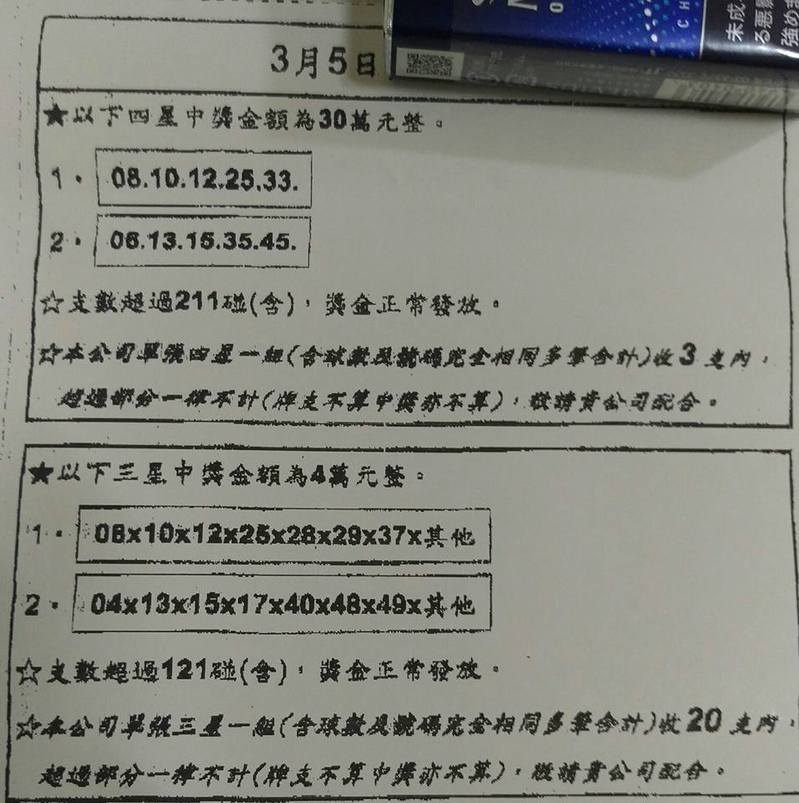 3月5日
未成
る悪影
強めま
★以下四星中獎金額為30萬元整。
1. 08.10.12.25.33.
2. 06.13.15.35.45.
☆支數超過211碰(含),獎金正常發放。
☆本公司單張四星一組(含球數及號碼完全相同多筆合計)收3支內,
超過部分一律不計(牌支不算中獎亦不算),敬請貴公司配合。
★以下三星中獎金額為4萬元整。
1. 08x10x12x25x28x29x37x其他
2. 04x13x15x17x40x48x49x其他
☆支數超過121碰(含),獎金正常發放。
☆本公司單張三星一組(含球數及號碼完全相同多筆合計)收20支內,
超過部分一律不計(牌支不算中獎亦不算),敬請貴公司配合。